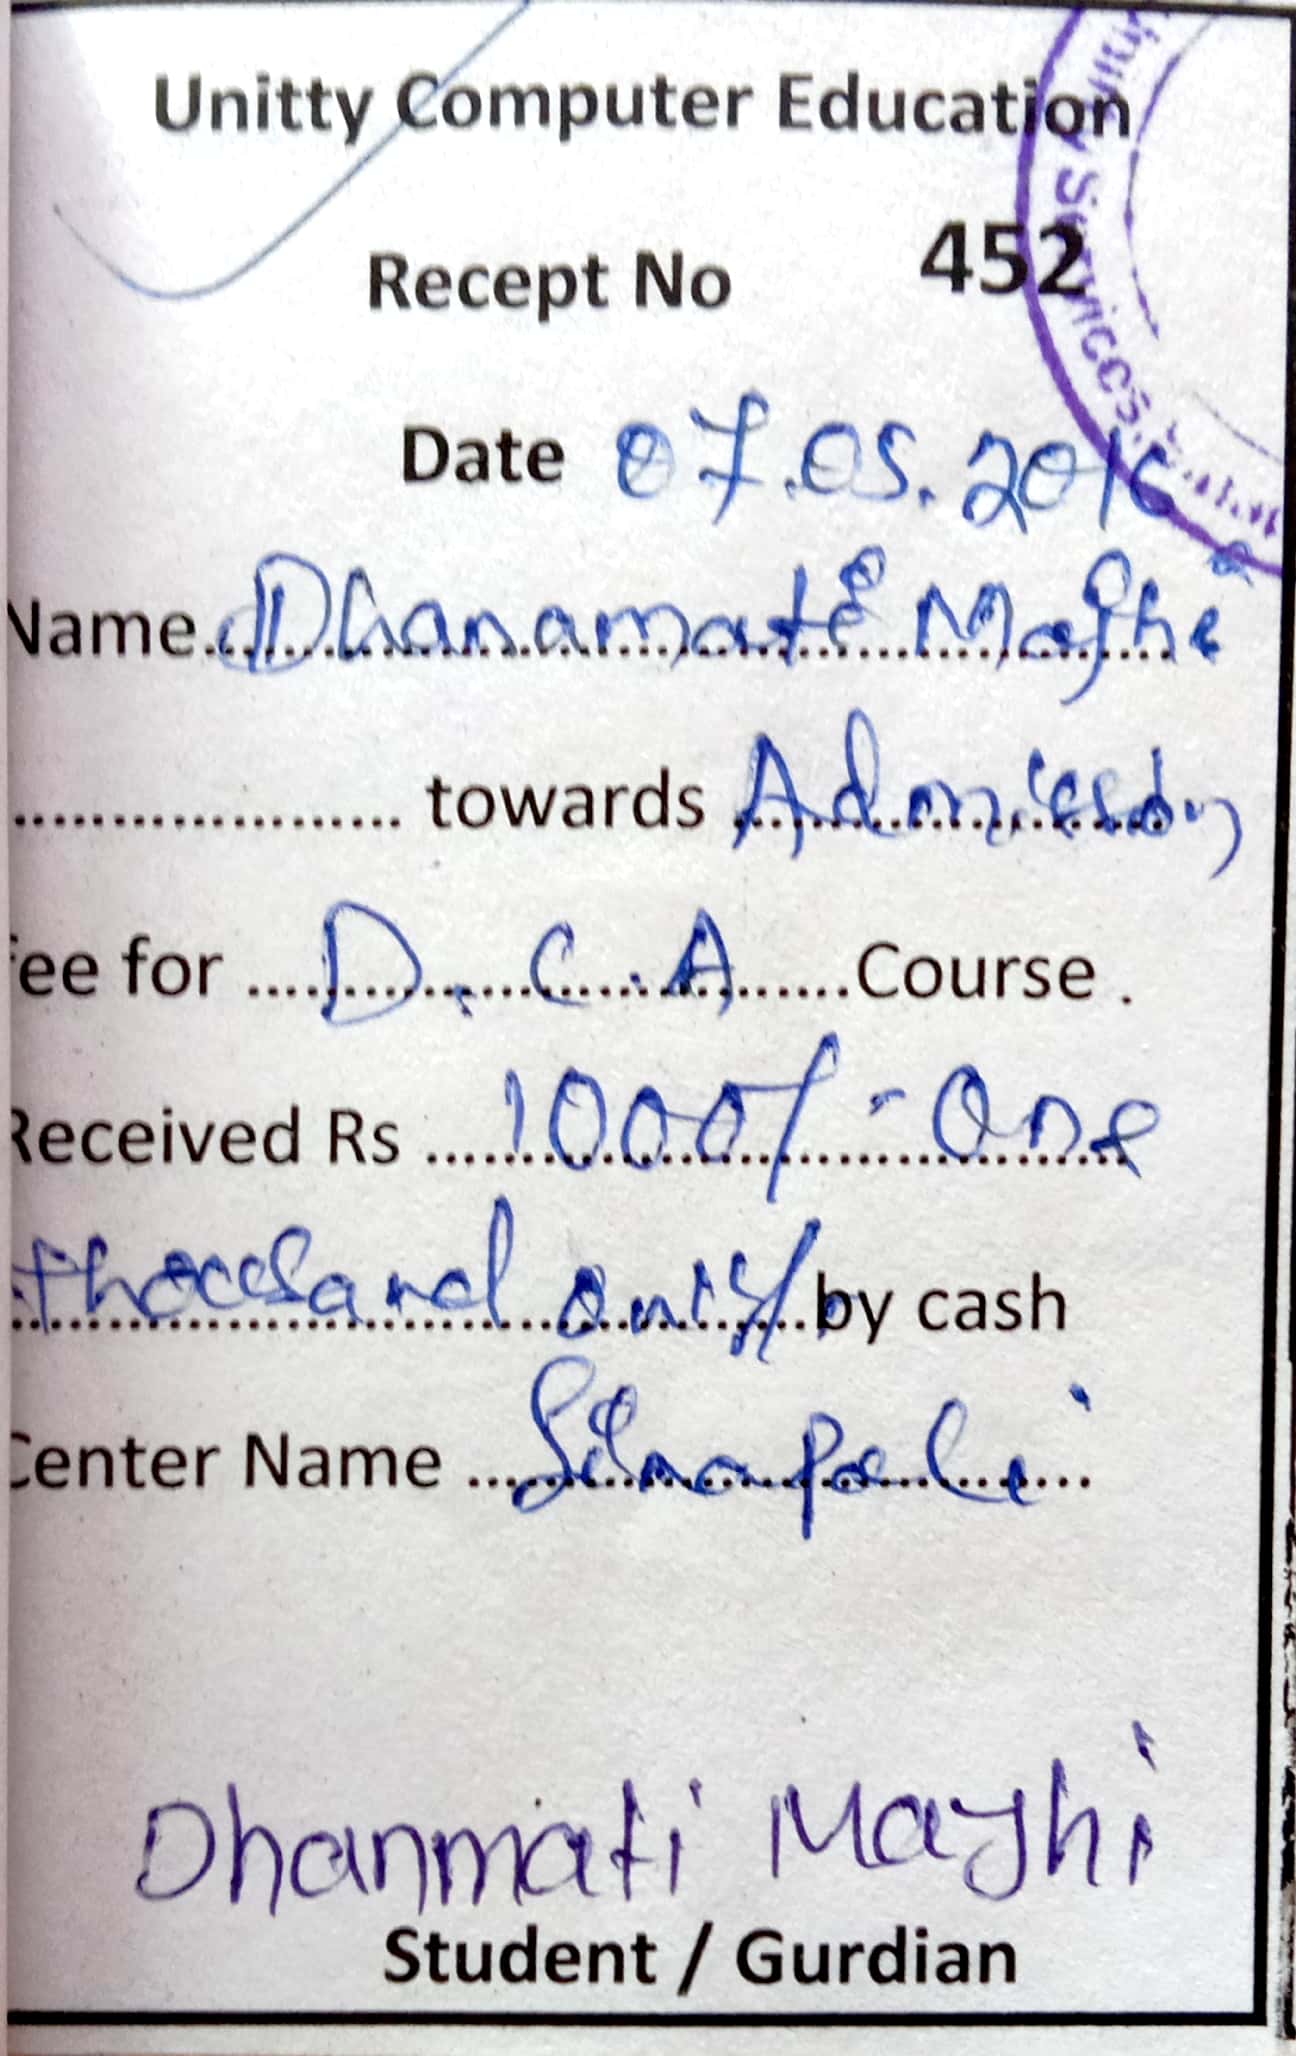 Unitty Computer Education
Recept No 452
Date 07.05.2016
Name Dhanamati Majhi
.................... towards Admission
fee for ....D.C.A.......Course .
Received Rs ....1000/- One
thousand only/ by cash
Center Name ....Sinapali....
Dhanmati Majhi
Student / Gurdian
Services